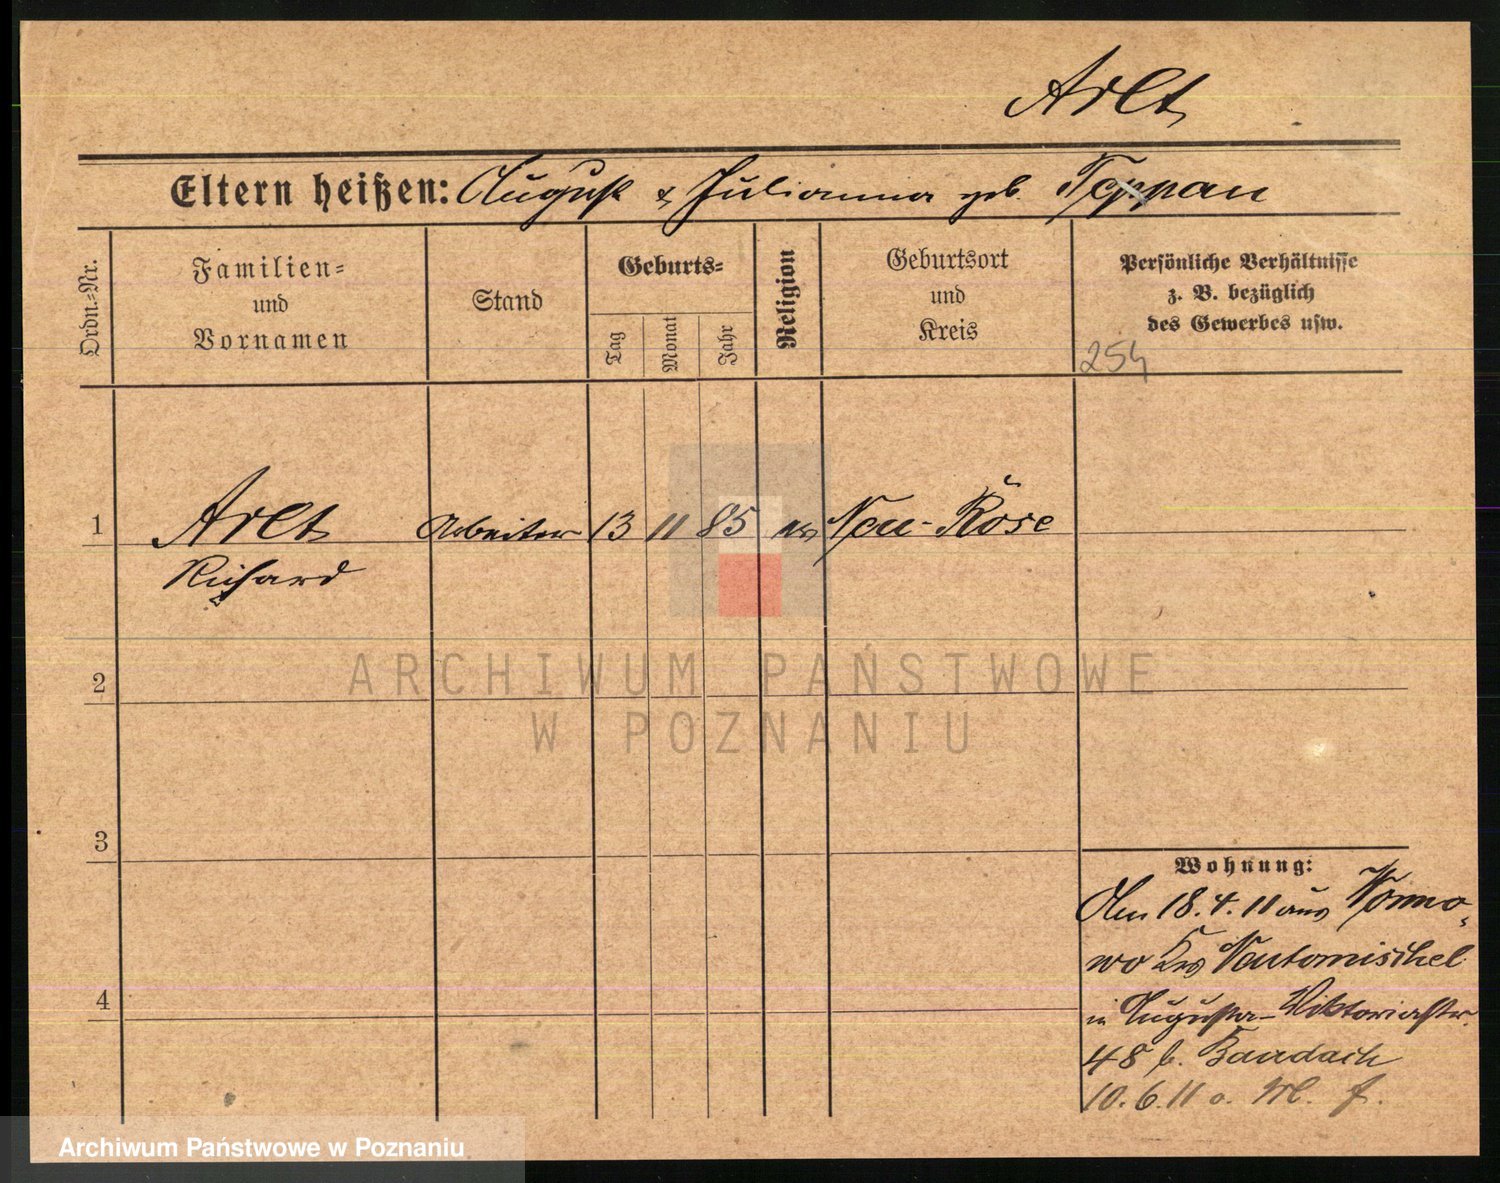 Arlt
Eltern heißen: August & Julianna geb. Teppan
Ordn.-Nr.
Familien-
und
Vornamen
Stand
Geburts-
Tag
Monat
Jahr
Religion
Geburtsort
und
Kreis
Persönliche Verhältnisse
z. B. bezüglich
des Gewerbes usw.
254
1 Arlt Arbeiter 13 11 85 ev Neu-Röse
Richard
2
ARCHIWUM PAŃSTWOWE
W POZNANIU
3
4
Wohnung:
Am 18.4.11 aus
wo Krs Neutomischel
in Augusta-Viktoriastr.
48 b. Bandach
10.6.11 o. M. f.
Archiwum Państwowe w Poznaniu